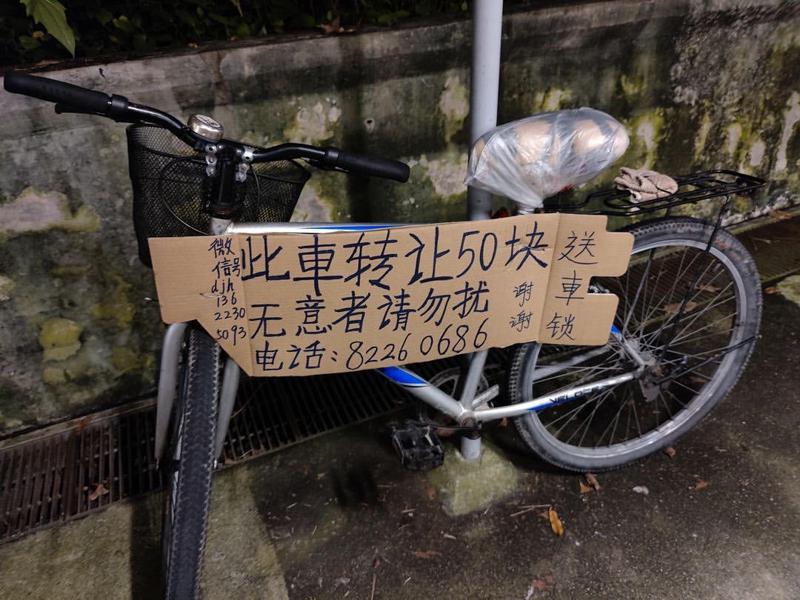 微
信号
djh
136
2230
5093
此車转让50块
无意者请勿扰
谢
谢
电话：82260686
送
車
锁